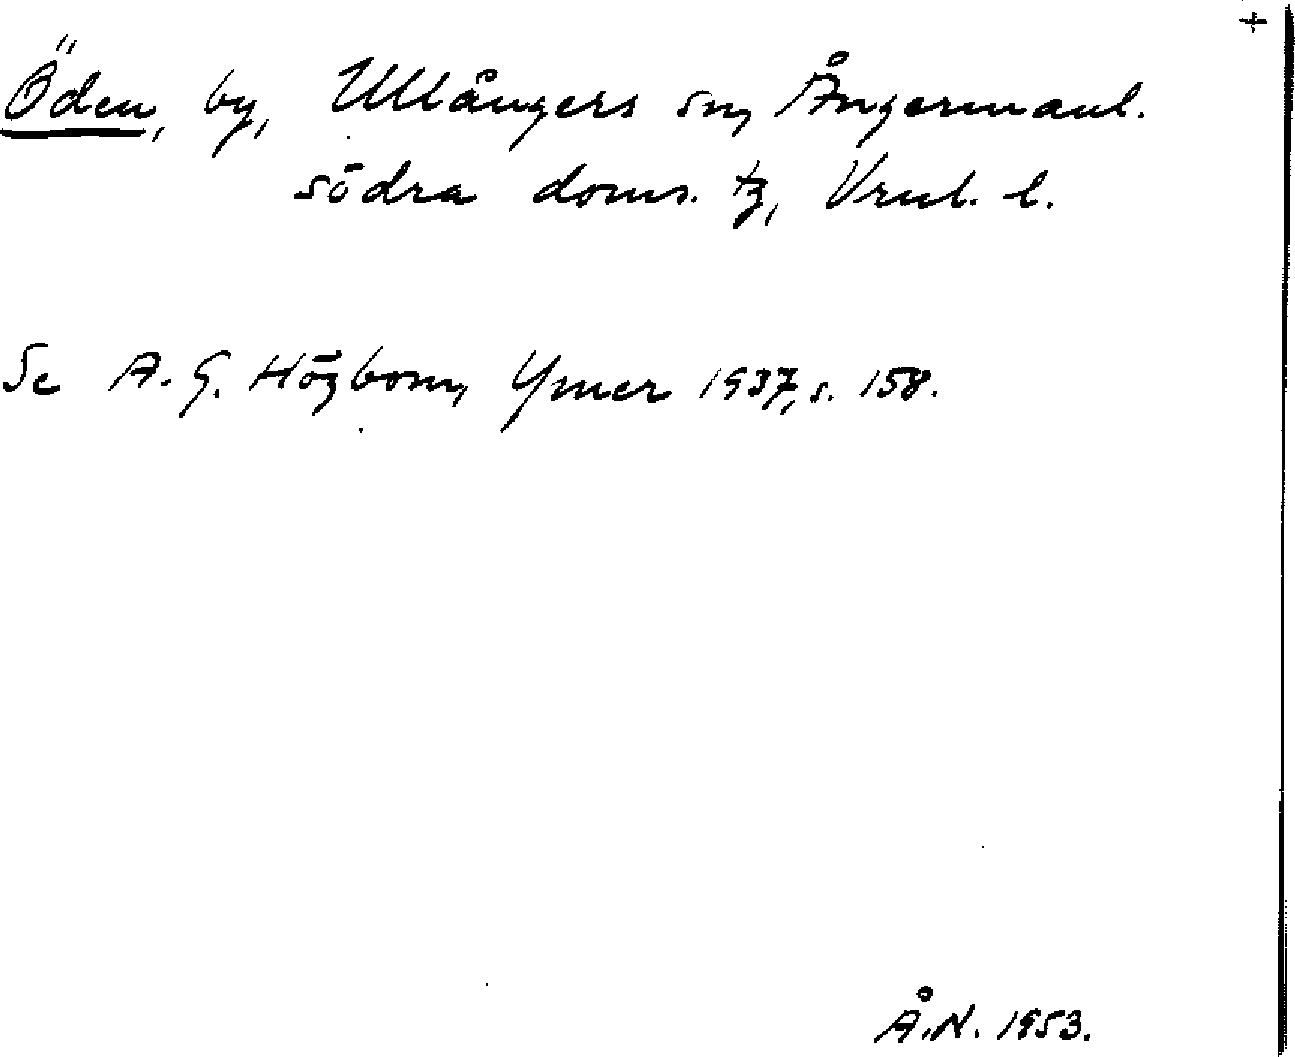 +
Öden, by, Ullångers sn, Ångermanl.
södra doms. tg, Vrnl. l.
Se A. G. Högbom, Ymer 1937, s. 158.
Å.N. 1953.